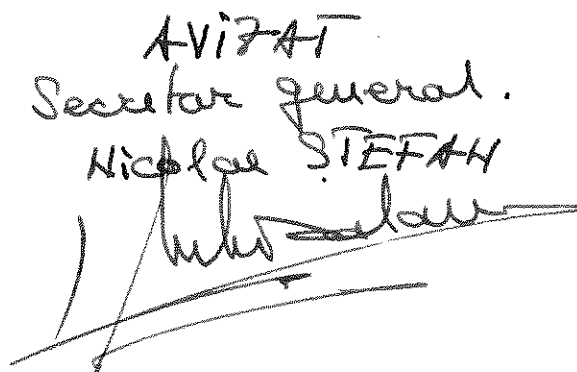 AVIZAT
Secretar general.
Nicolae ȘTEFAN